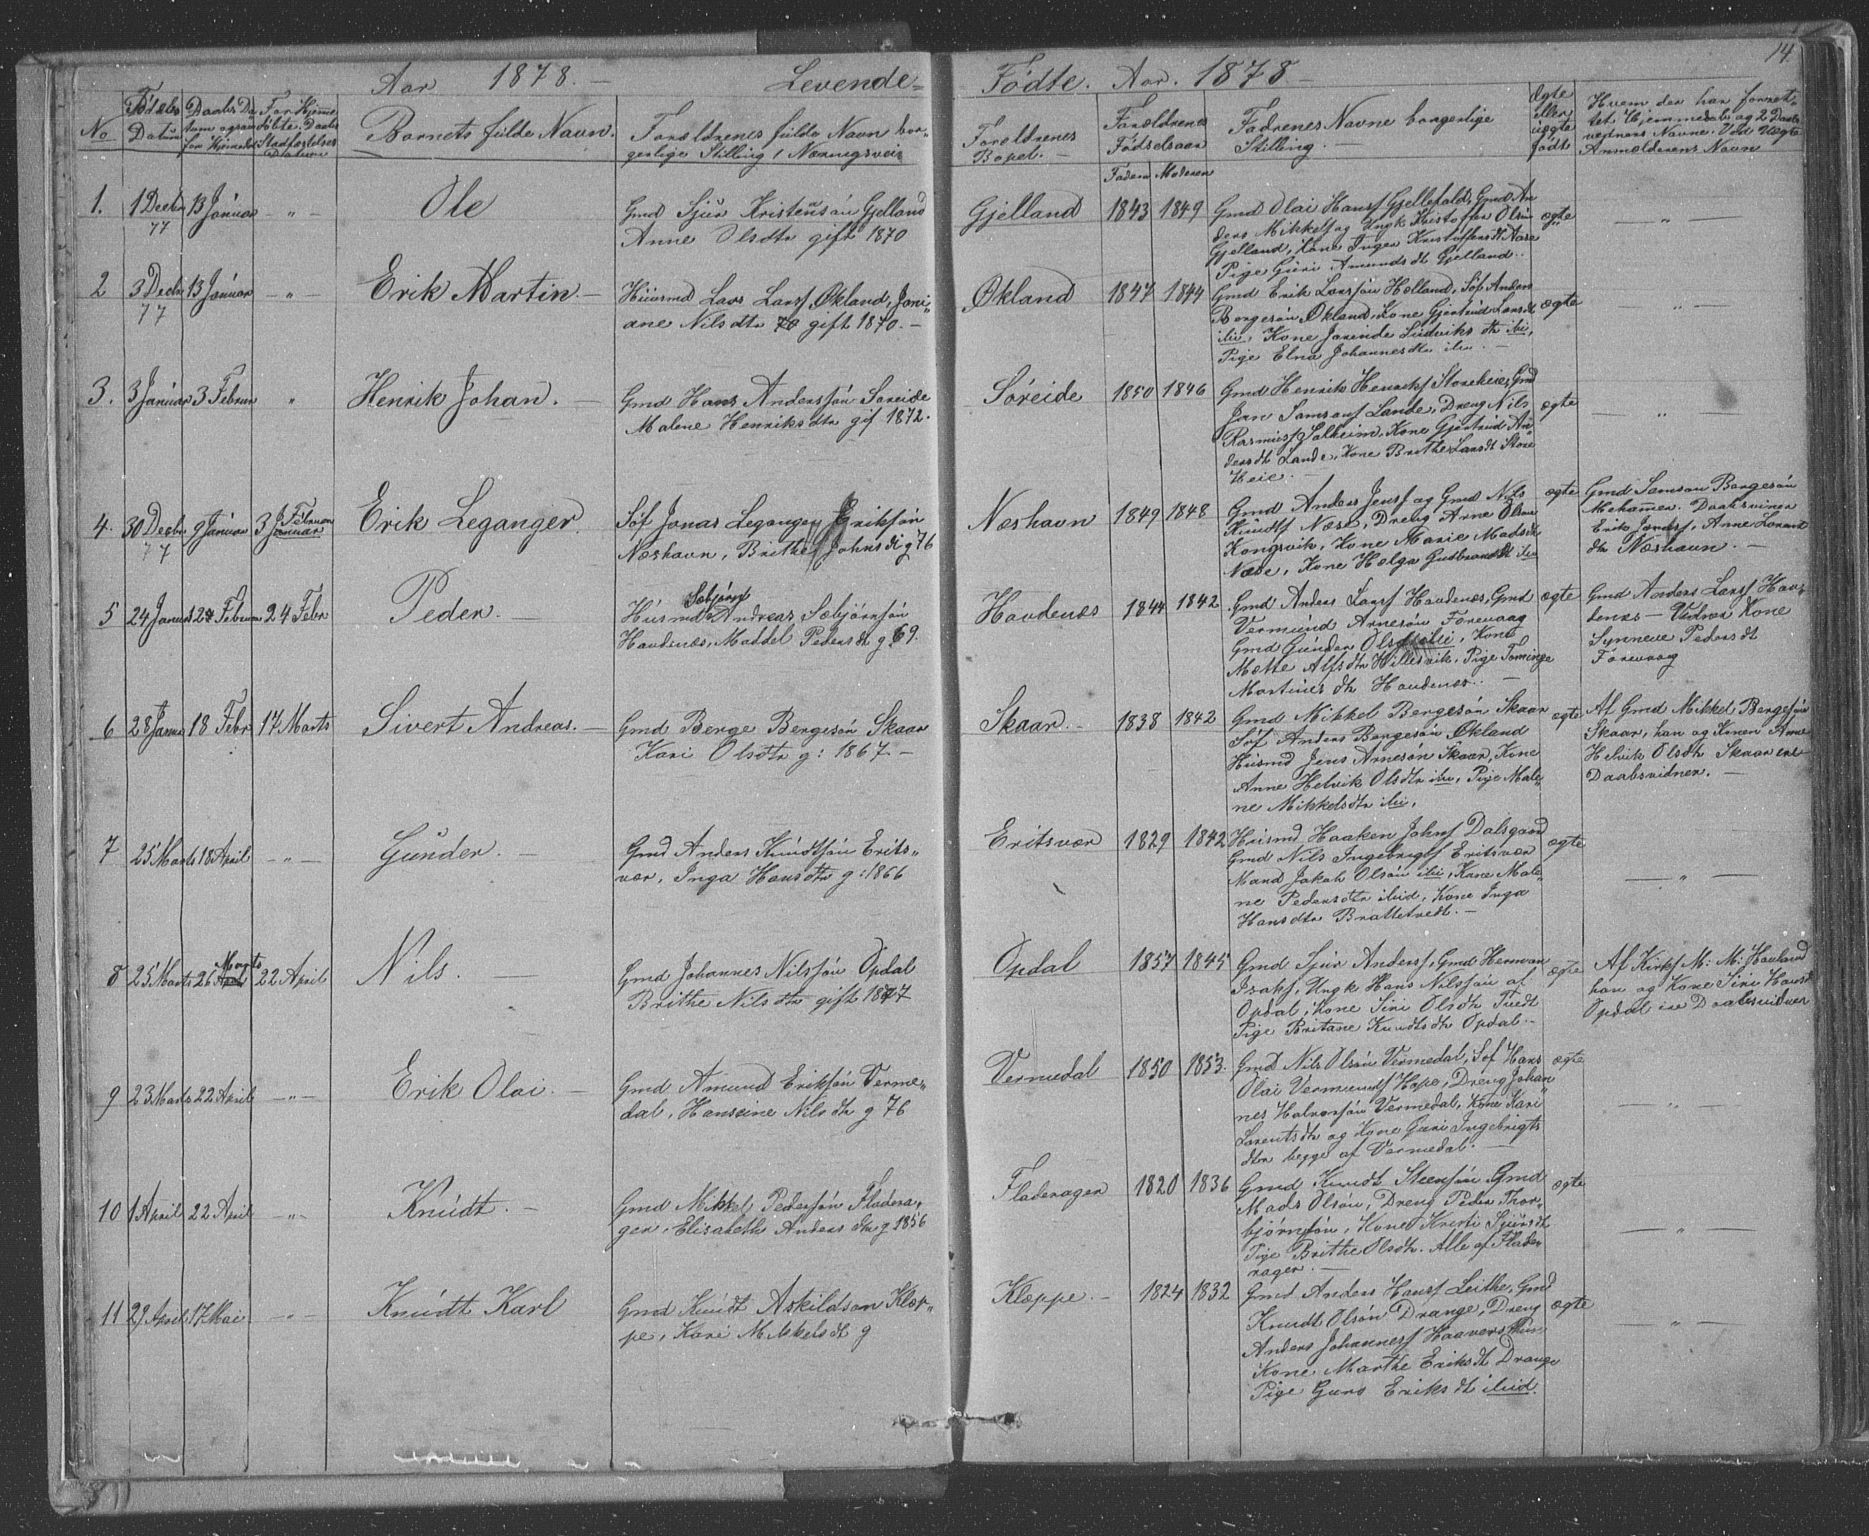 14
Aar 1878. — Levende=
Födte. Aar. 1878
No
Födsels Datum
Daabs Da
Barnets fulde Navn.
Foraldrenes fulde Navn bor-
gerlige Stilling / Næringsvei
Foraldrenes
Bopel. —
Foraldrenes
Födselsaar
Faderen Moderen
Fadrenes Navne borgerlige
Stilling. —
Ægte
eller
uægte
födt
Hvem der har forret-
tet Hjemmedaab og 2 Daabs
vidners Navne. Ved Uægte
Anmelderens Navn
1. 1 Decbr 77 13 Januar - " - Ole
Gmd Sjur Kristensön Gjelland
Anne Olsdtr gift 1870
Gjelland 1843 1849
Gmd Olai Hansf Gjellefald, Gmd An
ders Mikkelf og Ungk Kristoffer Olsön
Gjelland, Kone Inger Kristoffersdt Aase
Pige Guri Amundsdt Gjelland.
ægte — " —
2 3 Decbr 77 13 Januar - " - Erik Martin. —
Huusmd Lars Larsf Økland, Jori-
ane Nilsdtr 70 gift 1870. —
Økland 1847 1844
Gmd Erik Larssön Hælland, Söf Anders
Børgesön Økland, Kone Gjertrud Larsdt
ibi, Kone Jorinde Ludviksdtr ibi,
Pige Elna Johannesdtr ibi. —
ægte — " —
3. 3 Januar 3 Februar " Henrik Johan. —
Gmd Hans Anderssön Søreide
Malene Henriksdtr gif 1872.
Söreide 1850 1846
Gmd Henrik Henrikf Storeheie, Gmd
Jon Samsonf Lande, Dreng Nils
Rasmusf Solheim, Kone Gjertrud An-
dersdt Lande, Kone Brithe Larsdt Store
Heie. —
ægte — " —
4. 30 Decbr 77 9 Januar 3 Februar Januar Erik Leganger
Söf Jonas Leganger Eriksön
Næshavn, Brithe Johnsdt g 76
Næshavn 1849 1848
Gmd Anders Jensf og Gmd Nils
Knudtf Næse, Dreng Arne Olsön
Kongsvik, Kone Marie Madsdt
Næse, Kone Helga Gudbrandsdt ibi
ægte
Gmd Samson Børgesön
Mehamen. Daabsvidner
Erik Jonasf, Anne Lorent
dtr Næshavn. —
5 24 Januar 24 Februar 24 Febr Peder. —
Sebjörnf
Husmd Andreas Sæbjörnsön
Havdenæs, Maddel Pedersdt g 69.
Havdenæs 1844 1842
Gmd Anders Larsf Havdenæs, Gmd
Vermund Arnesön Forevaag
Gmd Gunder Olsön ibi, Kone
Mætte Alfsdtr Hillesvik, Pige Tominge
Martinesdtr Havdenæs. —
ægte
Gmd Anders Larsf Hav-
denæs — Vidner Kone
Synneve Pedersdt
Forevaag
6 28 Janua 18 Febr 17 Marts Sivert Andreas. —
Gmd Berge Bergesön Skaar
Kari Olsdtr g: 1867. —
Skaar. — 1838 1842
Gmd Mikkel Bergesön Skaar
Söf Anders Børgesön Økland
Husmd Jens Arnesön Skaar, Kone
Anne Helvik Olsdtr ibi, Pige Male-
ne Mikkelsdtr ibi.
ægte
Af Gmd Mikkel Bergesön
Skaar, han og Konen Anne
Helvik Olsdtr Skaar ere
Daabsvidner. —
7 25 Marts 18 April - " - Gunder. —
Gmd Anders Knudtsön Erits-
vær, Inga Hansdtr g: 1866
Eritsvær 1829 1842
Husmd Haaken Johnf Dalsgaard
Gmd Nils Ingebrigtf Eritsvær
Mand Jakob Olsön ibi, Kone Male-
ne Pedersdtr ibid, Kone Inga
Hansdtr Brattetvedt. —
ægte — " —
8 25 Marts 26 Marts April 22 April Nils. —
Gmd Johannes Nilssön Opdal
Brithe Nilsdtr gift 1877
Opdal 1857 1845
Gmd Sjur Andersf, Gmd Herman
Isakf, Ungk Hans Nilssön af
Opdal, Kone Siri Olsdtr Tvedt
Pige Britane Knudtsdtr Opdal. —
ægte
Af Kirkf M: M: Havland
han og Kone Siri Hansdt
Opdal ere Daabsvidner
9 23 Marts 22 April - " - Erik Olai. —
Gmd Amund Eriksön Verme-
dal, Hanseine Nilsdtr g 76
Vermedal 1850 1853.
Gmd Nils Olsön Vermedal, Söf Hans
Olai Vermundf Hope, Dreng Johan-
nes Halvorsön Vermedal, Kone Kari
Larentsdtr og Kone Guri Ingebrigts
dtr begge af Vermedal. —
ægte — " —
10 1 April 22 April - " - Knudt. —
Gmd Mikkel Pedersön Fladera-
ger, Elisabeth Andersdtr g 1856
Fladerager 1820 1836
Gmd Knudt Steensön, Gmd
Mads Olsön, Dreng Peder Thor-
björnsön, Kone Kristi Sjursdt
Pige Brithe Olsdtr. Alle af Flade-
rager. —
ægte — " —
11 29 April 17 Mai - " - Knudt Karl
Gmd Knudt Askildson Klæp-
pe, Kari Mikkelsdt g
Klæppe. — 1824 1832
Gmd Anders Hansf Leithe, Gmd
Knudt Olsön Drange, Dreng
Anders Johannesf Haaversthun
Kone Marthe Eriksdt Drange
Pige Guro Eriksdt ibid.
ægte — " —